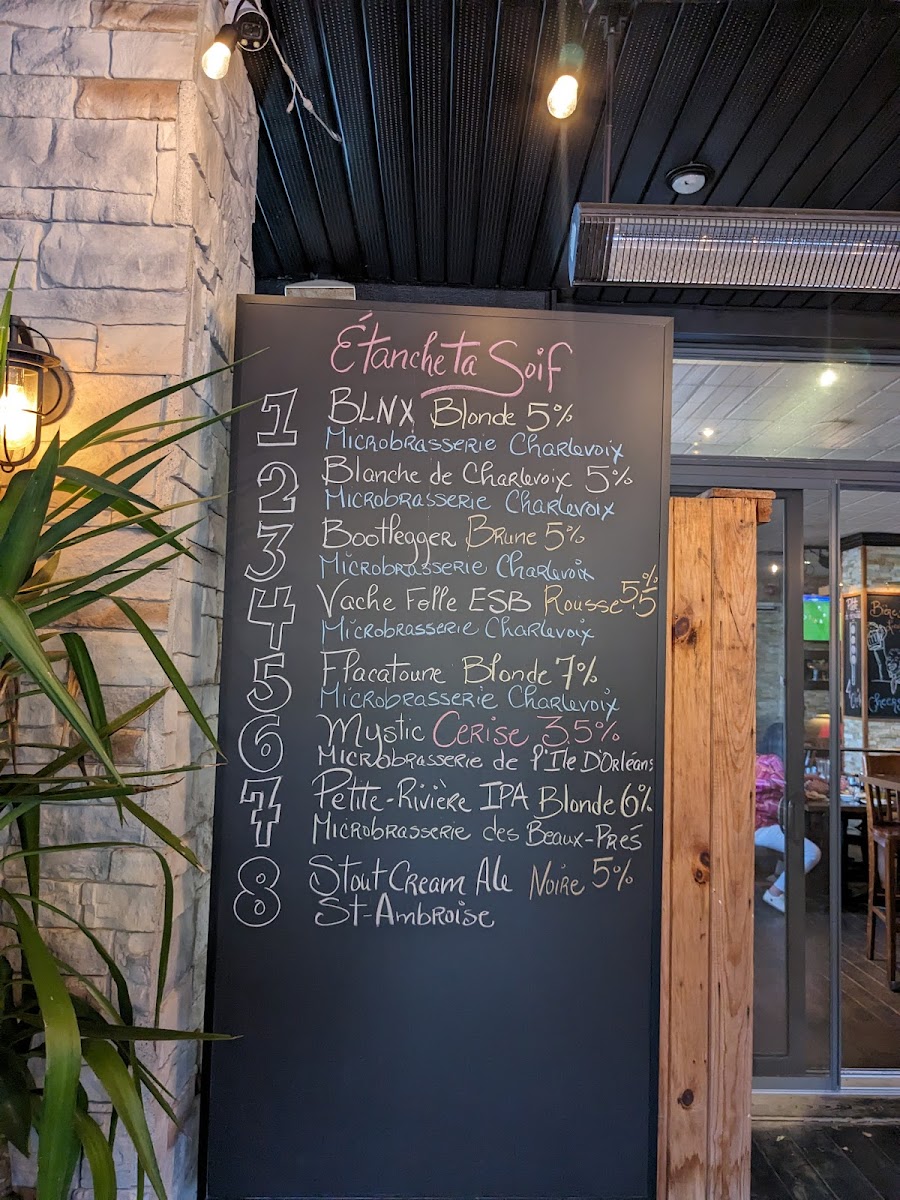 Étanche ta Soif
1 BLNX Blonde 5%
Microbrasserie Charlevoix
2 Blanche de Charlevoix 5%
Microbrasserie Charlevoix
3 Bootlegger Brune 5%
Microbrasserie Charlevoix
4 Vache Folle ESB Rousse 5,5%
Microbrasserie Charlevoix
5 Flacatoune Blonde 7%
Microbrasserie Charlevoix
6 Mystic Cerise 3.5%
Microbrasserie de l'Ile D'Orléans
7 Petite-Rivière IPA Blonde 6%
Microbrasserie des Beaux-Prés
8 Stout Cream Ale Noire 5%
St-Ambroise
Cheers